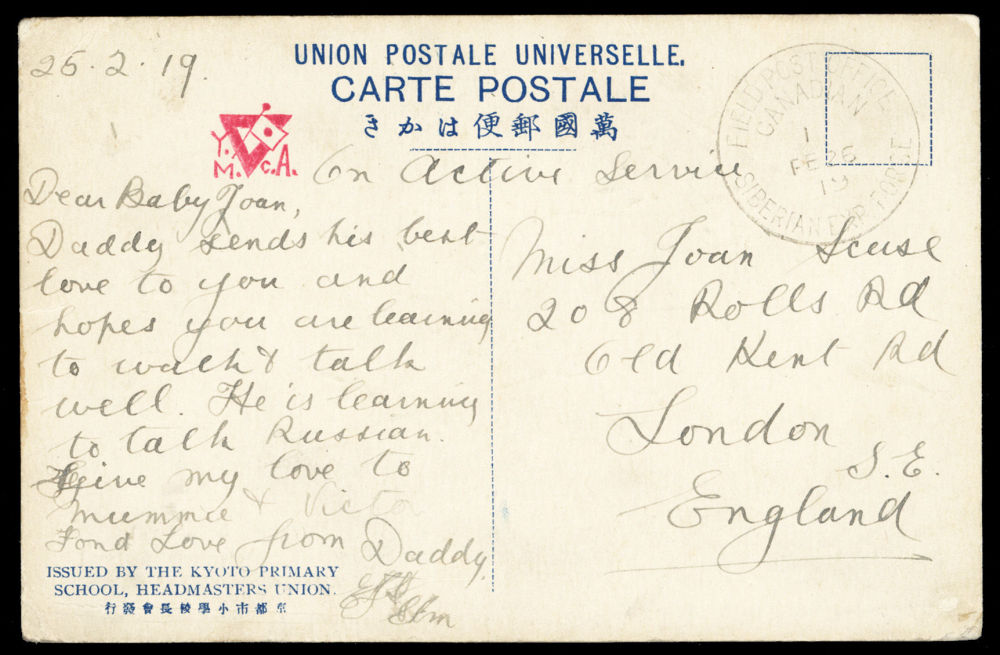 25.2.19.
UNION POSTALE UNIVERSELLE.
CARTE POSTALE
きかは便郵國萬
Y.M.C.A.
FIELD POST OFFICE
CANADIAN
1
FE 26
19
SIBERIAN EXP. FORCE
On Active Service
Dear Baby Joan,
Daddy sends his best
love to you and
hopes you are learning
to walk & talk
well. He is learning
to talk Russian.
Give my love to
Mummie & Victor
Fond Love from Daddy.
Miss Joan Scuse
208 Rolls Rd
Old Kent Rd
London
S.E.
England
ISSUED BY THE KYOTO PRIMARY
SCHOOL, HEADMASTERS UNION.
行發會長校學小市都京